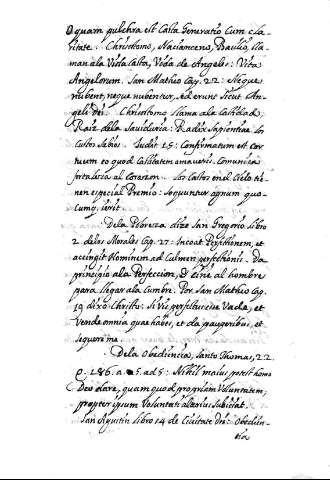 O quam pulchra est Casta Generatio Cum cla-
ritate. Chrisostomo, Nacianceno, Basilio, lla-
man ala Vida Casta, Vida de Angeles: Vita
Angelorum. San Matheo Cap. 22: Neque
nubent, neque nubentur, sed erunt sicut An-
geli Dei. Chrisostomo llama ala Castidad,
Raiz dela Sauiduria: Radix Sapientiae. Los
Castos sabios. Judit. 15: Confirmatum est cor
tuum eo quod Castitatem amaueris. Comunica
fortaleza al Corazon. Los Castos en el Cielo tie-
nen especial Premio: Sequuntur agnum quo-
cumq. ierit.
Dela Pobreza dize San Gregorio Libro
2. delos Morales Cap. 27: Incoat Perfectionem, et
accingit Hominem ad Culmen perfectionis. Da
principio ala Perfeccion, y Ciñe al hombre
para llegar ala Cumbre. Por San Matheo Cap.
19 dixo Christo: Si vis perfectus esse Vade, et
Vende omnia quae habes, et da pauperibus, et
sequere me.
Dela Obediencia, Santo Thomas, 2.2.
q. 186. a. 5. ad 5: Nihil maius potest homo
Deo dare, quam quod propriam Voluntatem,
propter ipsum Voluntati alterius subiiciat.
San Agustin Libro 14 de Ciuitate Dei: Obedien-
tia